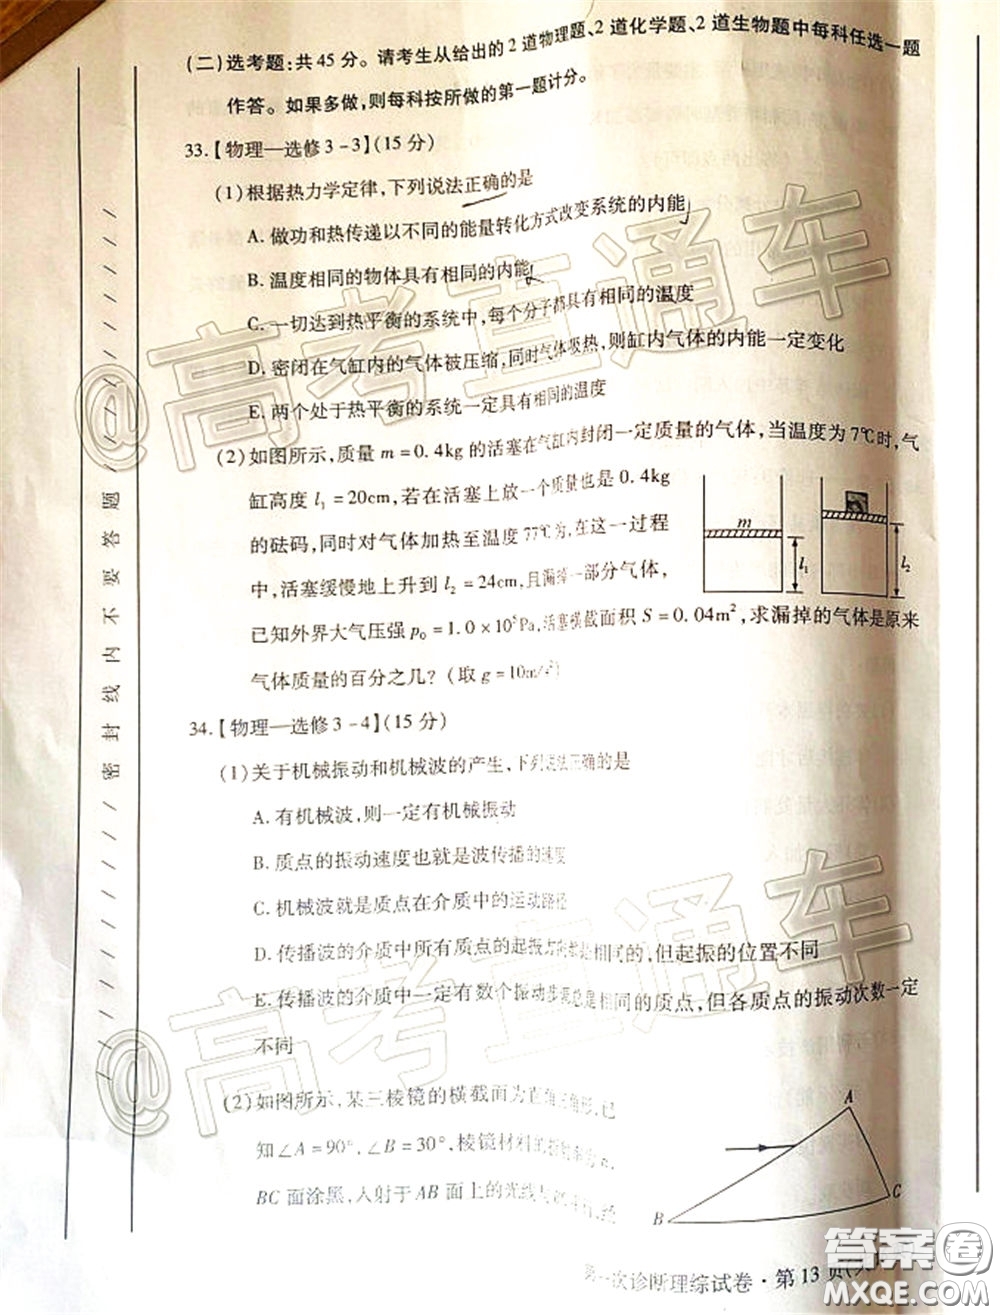 (二)选考题:共45分。请考生从给出的2道物理题、2道化学题、2道生物题中每科任选一题
作答。如果多做,则每科按所做的第一题计分。
33.【物理—选修3-3】(15分)
(1)根据热力学定律,下列说法正确的是
A.做功和热传递以不同的能量转化方式改变系统的内能
B.温度相同的物体具有相同的内能
C.一切达到热平衡的系统中,每个分子都具有相同的温度
D.密闭在气缸内的气体被压缩,同时气体吸热,则缸内气体的内能一定变化
E.两个处于热平衡的系统一定具有相同的温度
(2)如图所示,质量m=0.4kg的活塞在气缸内封闭一定质量的气体,当温度为7℃时,气
缸高度l₁=20cm,若在活塞上放一个质量也是0.4kg
的砝码,同时对气体加热至温度77℃为,在这一过程
中,活塞缓慢地上升到l₂=24cm,且漏掉一部分气体,
已知外界大气压强p₀=1.0×10⁵Pa,活塞横截面积S=0.04m²,求漏掉的气体是原来
气体质量的百分之几?(取g=10m/s²)
m
l₁
l₂
34.【物理—选修3-4】(15分)
(1)关于机械振动和机械波的产生,下列说法正确的是
A.有机械波,则一定有机械振动
B.质点的振动速度也就是波传播的速度
C.机械波就是质点在介质中的运动路径
D.传播波的介质中所有质点的起振方向都是相同的,但起振的位置不同
E.传播波的介质中一定有数个振动步调总是相同的质点,但各质点的振动次数一定
不同
(2)如图所示,某三棱镜的横截面为直角三角形,已
知∠A=90°,∠B=30°,棱镜材料的折射率为n,
BC面涂黑,入射于AB面上的光线与
A
B
C
第一次诊断理综试卷·第13页
密封线内不要答题
@高考直通车
@高考直通车
答案圈
MXQE.COM